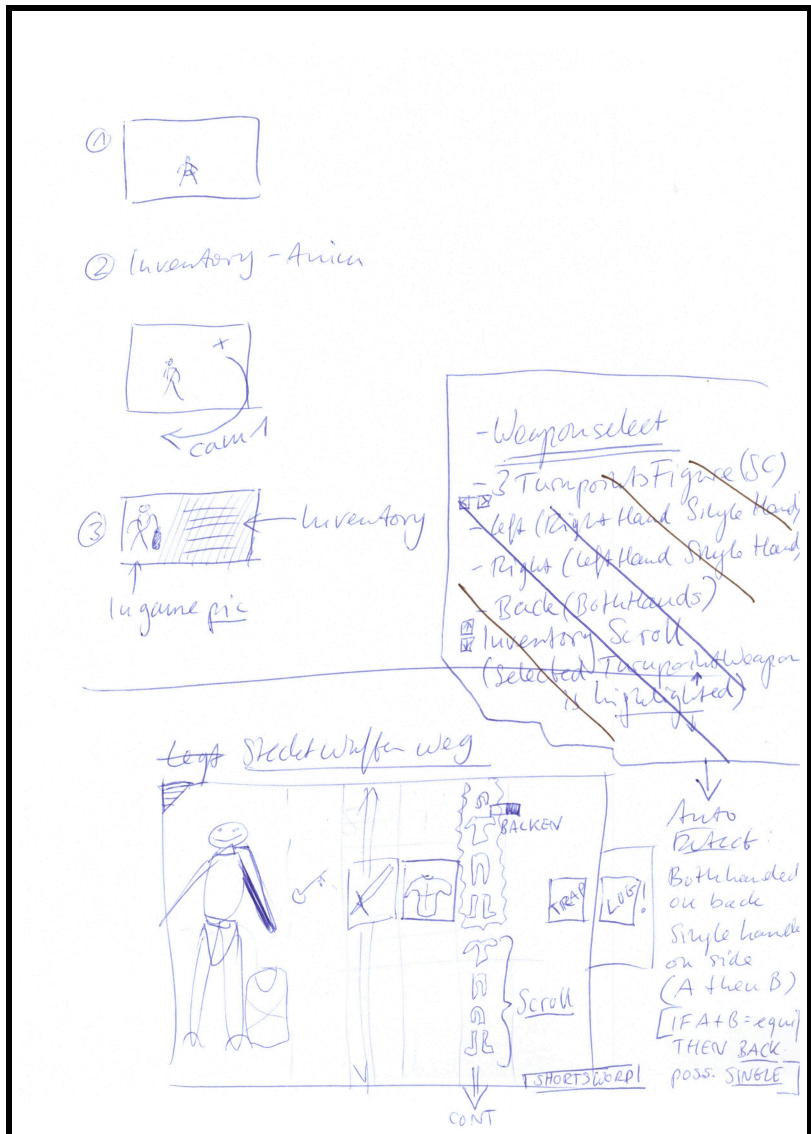 ①
② Inventory - Anim
cam 1
③
Inventory
Ingame pic
- Weaponselect
- 3 Turnpoints Figure (SC)
- Left (Right Hand Single Hand)
- Right (Left Hand Single Hand)
- Back (Both Hands)
Inventory Scroll
(Selected Turnpoint Weapon
is highlighted)
Legt Steckt Waffen weg
BALKEN
TRAP
LOG!
Scroll
SHORTSWORD
CONT
Auto
Detect:
Bothhanded
on back
Single hande
on side
(A then B)
[IF A+B = equip
THEN BACK
poss. SINGLE]